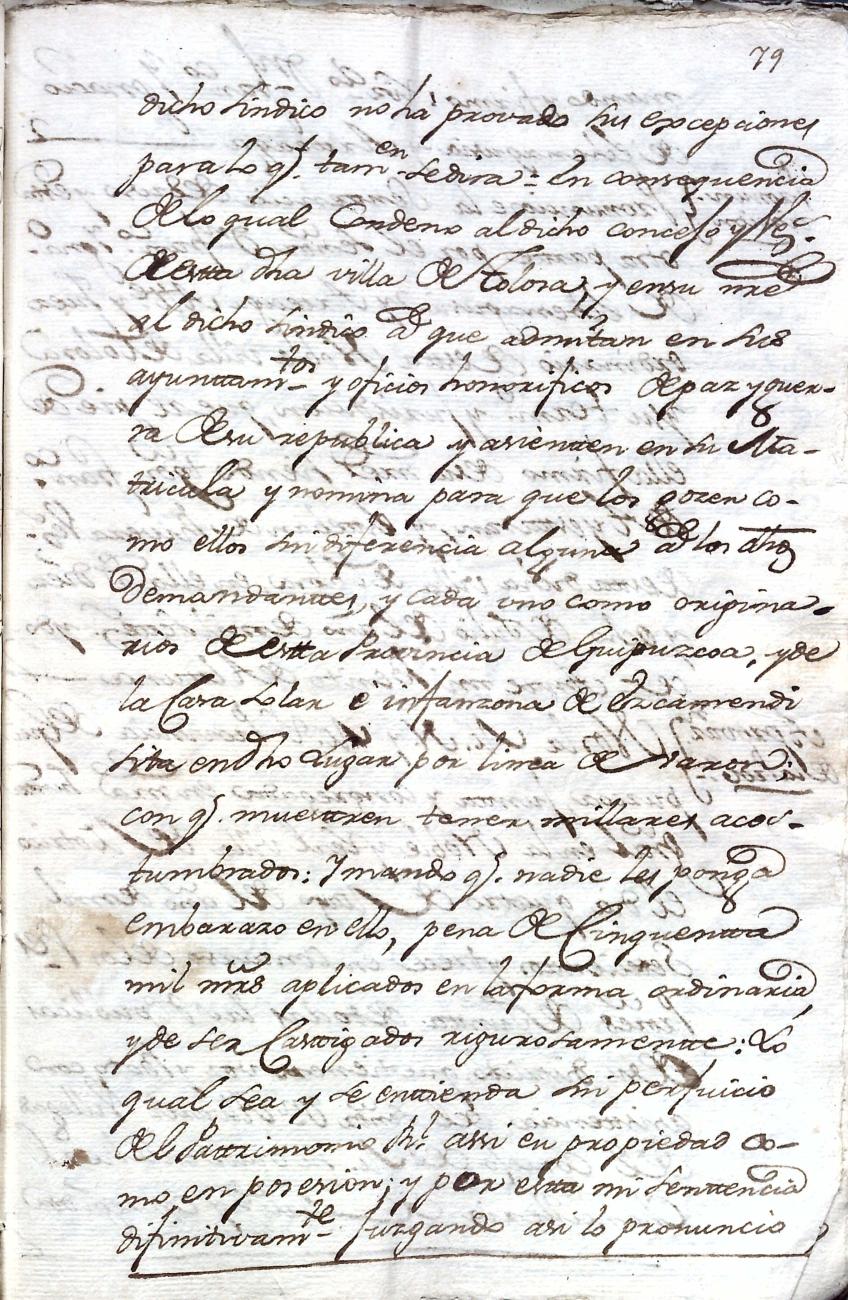 79
dicho sindico no há provado sus excepciones
para lo q.^e tam^en. se dira = En consequencia
de lo qual Condeno al dicho concejo y Vec.^s
de esta dha villa de Tolosa, y en su nre
al dicho sindico a que admitan en sus
ayuntam^tos y oficios honorificos de paz y guer-
ra de su republica y asienten en su Ma-
tricula y nomina para que los gozen co-
mo ellos sin diferencia alguna a los dhos
Demandantes, y cada uno como origina-
rios de esta Provincia de Guipuzcoa, y de
la Casa solar é infanzona de Ezcamendi
sita en dho Lugar por linea de varon:
con q.^e muestren tener millares acos-
tumbrados: Y mando q.^e nadie les ponga
embarazo en ello, pena de Cinquenta
mil mrs aplicados en la forma ordinaria,
y de ser Castigados rigurosamente: Lo
qual sea y se entienda sin perjuicio
del Patrimonio R.^l assi en propiedad co-
mo en posesion; y por esta mi sentencia
difinitivam^te juzgando asi lo pronuncio